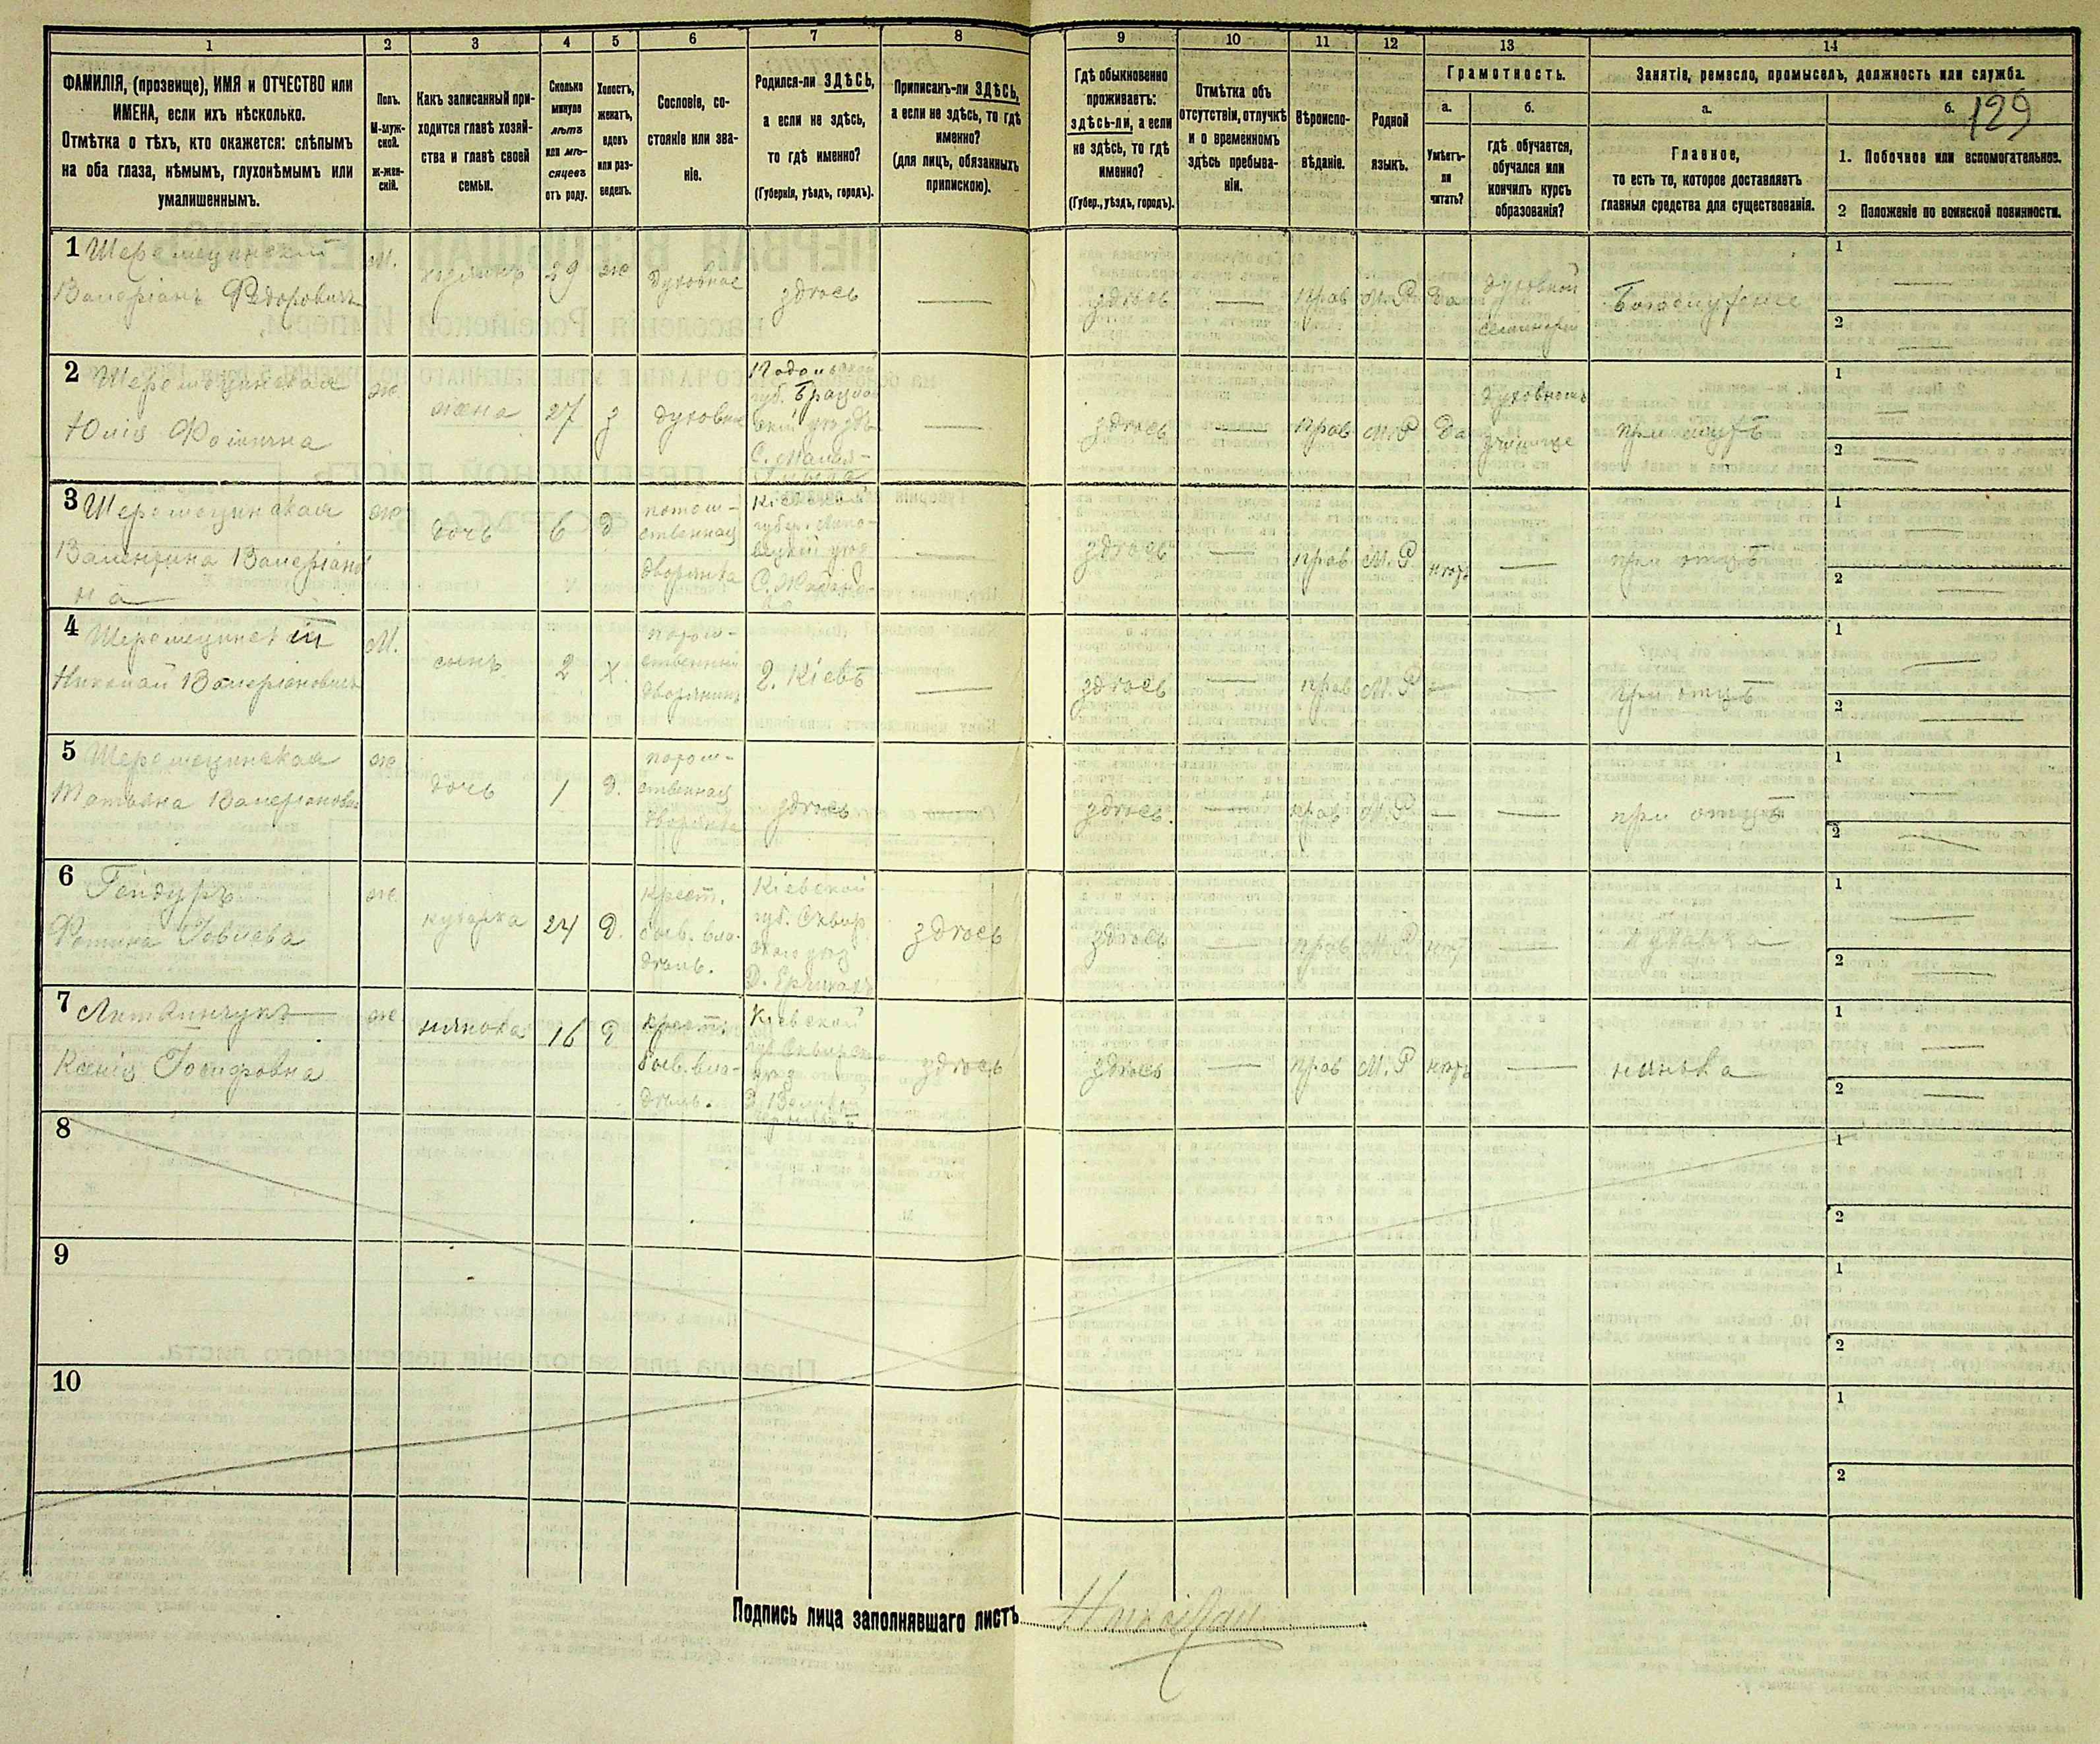 1 2 3 4 5 6 7 8 9 10 11 12 13 14
ФАМИЛІЯ, (прозвище), ИМЯ и ОТЧЕСТВО или
ИМЕНА, если ихъ нѣсколько.
Отмѣтка о тѣхъ, кто окажется: слѣпымъ
на оба глаза, нѣмымъ, глухонѣмымъ или
умалишеннымъ.
Полъ.
М-муж-
ской.
Ж-жен-
скій.
Какъ записанный при-
ходится главѣ хозяй-
ства и главѣ своей
семьи.
Сколько
минуло
лѣтъ
или мѣ-
сяцевъ
отъ роду.
Холостъ,
женатъ,
вдовъ
или раз-
веденъ.
Сословіе, со-
стояніе или зва-
ніе.
Родился-ли ЗДѢСЬ,
а если не здѣсь,
то гдѣ именно?
(Губернія, уѣздъ, городъ).
Приписанъ-ли ЗДѢСЬ,
а если не здѣсь, то гдѣ
именно?
(для лицъ, обязанныхъ
припискою).
Гдѣ обыкновенно
проживаетъ:
здѣсь-ли, а если
не здѣсь, то гдѣ
именно?
(Губер., уѣздъ, городъ).
Отмѣтка объ
отсутствіи, отлучкѣ
и о временномъ
здѣсь пребыва-
ніи.
Вѣроиспо-
вѣданіе.
Родной
языкъ.
Грамотность.
а.
Умѣетъ-
ли
читать?
б.
гдѣ обучается,
обучался или
кончилъ курсъ
образованія?
Занятіе, ремесло, промыселъ, должность или служба.
а.
Главное,
то есть то, которое доставляетъ
главныя средства для существованія.
б. 129
1. Побочное или вспомогательное.
2 Положеніе по воинской повинности.
1 Шеромецинскій
Валеріанъ Федоровичъ
М. хозяинъ 29 ж духовное здѣсь — здѣсь — прав М.Р да
духовной
семинаріи
Богослуженіе
1 —
2 —
2
Юлія Фоминична
ж жена 27 з духовное
Подольской
губ. Брацлав
скій уѣздъ
С.
— здѣсь прав М.Р да
училище
при мужѣ
1 —
2 —
3 Шеромецинская
Валентина Валеріанов
на
ж дочь 6 д
потом-
ственная
дворянка
Кіевской
губер. Липо-
вецкій уѣз
С.
— здѣсь — прав М.Р. нѣтъ — при отцѣ
1 —
2 —
4 Шеромецинскій
Николай Валеріановичъ
М. сынъ 2 х.
потом-
ственный
дворянинъ
г. Кіевъ — здѣсь — прав М.Р — — при отцѣ
1 —
2 —
5 Шеромецинская
Татьяна Валеріановна
ж дочь 1 д.
потом-
ственная
дворянка
здѣсь — здѣсь. — прав М.Р — — при отцѣ
1 —
2 —
6 Гендуръ
ж кухарка 24 д.
крест.
быв. вла-
дѣль.
Кіевской
губ. Сквир
скаго уѣз
Д.
здѣсь здѣсь — прав М.Р нѣт — кухарка
1 —
2 —
7
Ксенія Іосифовна
ж нянька 16 д
крест.
быв. вла-
дѣль.
Кіевской
губ Сквирскаго
уѣз
здѣсь здѣсь — прав М.Р нѣтъ — нянька
1 —
2 —
8
1
2
9
1
2
10
1
2
Подпись лица заполнявшаго листъ